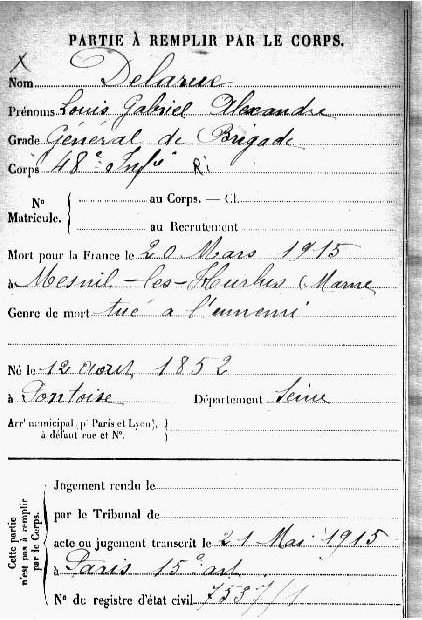 PARTIE À REMPLIR PAR LE CORPS.
X
Nom Delarue
Prénoms Louis Gabriel Alexandre
Grade Général de Brigade
Corps 48e Infie RI
No
Matricule.
au Corps. — Cl.
au Recrutement
Mort pour la France le 20 Mars 1915
à Mesnil-les-Hurlus (Marne
Genre de mort tué a l'ennemi
Né le 12 aout 1852
à Pontoise Département Seine
Arrt municipal (pr Paris et Lyon),
à défaut rue et No.
Cette partie
n'est pas à remplir
par le Corps.
Jugement rendu le
par le Tribunal de
acte ou jugement transcrit le 21 Mai 1915
à Paris 15e arrt
No du registre d'état civil